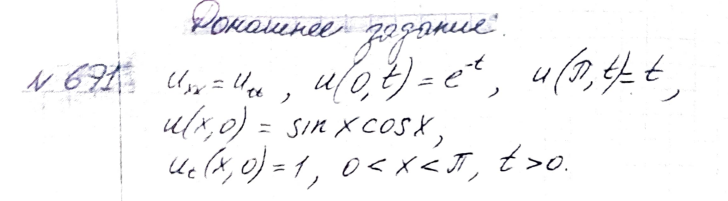 Домашнее задание.
N 671. u_xx = u_tt, u(0,t) = e^-t, u(π,t) = t,
u(x,0) = sin x cos x,
u_t(x,0) = 1, 0 < x < π, t > 0.